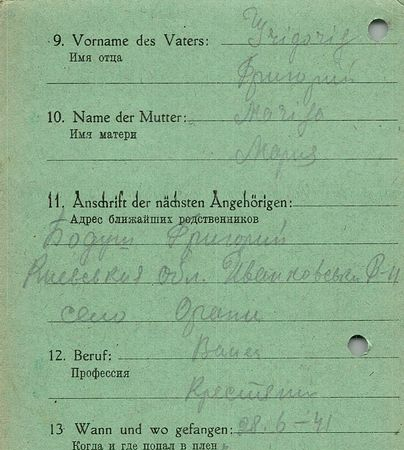 9. Vorname des Vaters: Grigorig
Имя отца
Григорий
10. Name der Mutter: Marija
Имя матери
Мария
11. Anschrift der nächsten Angehörigen:
Адрес ближайших родственников
Григорий
Киевская обл. Иванковский Р-н
село
12. Beruf: Bauer
Профессия
Крестянин
13 Wann und wo gefangen: 28.6-41
Когда и где попал в плен